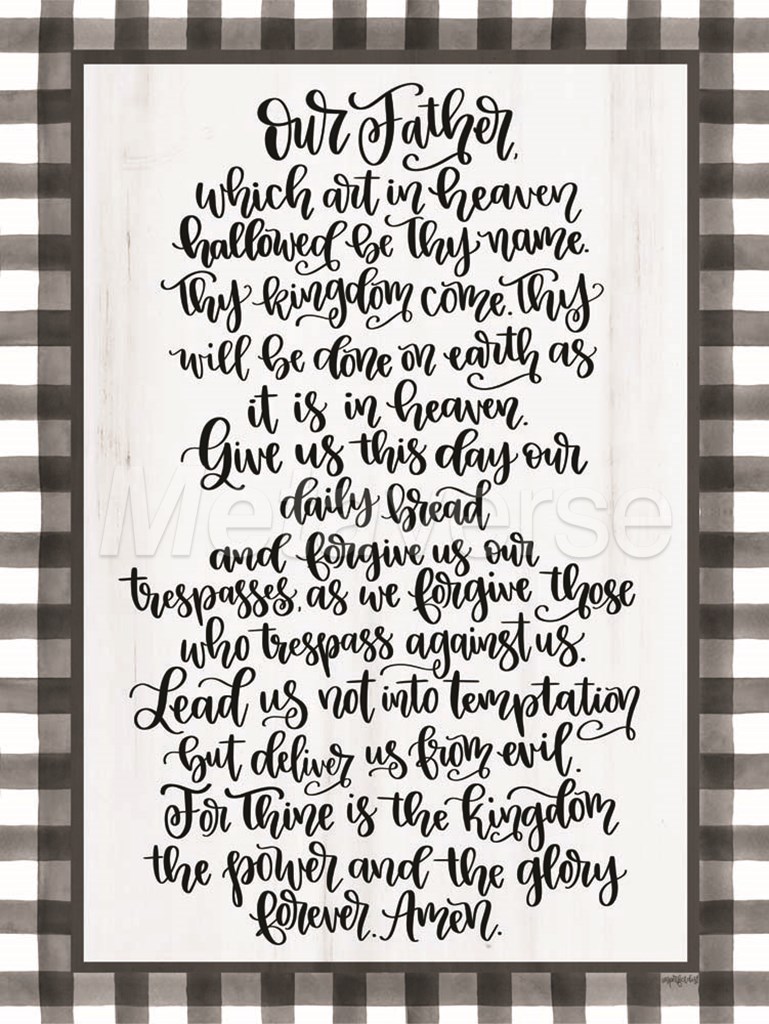 Our Father,
which art in heaven
hallowed be Thy name.
Thy kingdom come. Thy
will be done on earth as
it is in heaven.
Give us this day our
daily bread
Metaverse
and forgive us our
trespasses, as we forgive those
who trespass against us.
Lead us not into temptation
but deliver us from evil.
For Thine is the kingdom
the power and the glory
forever. Amen.